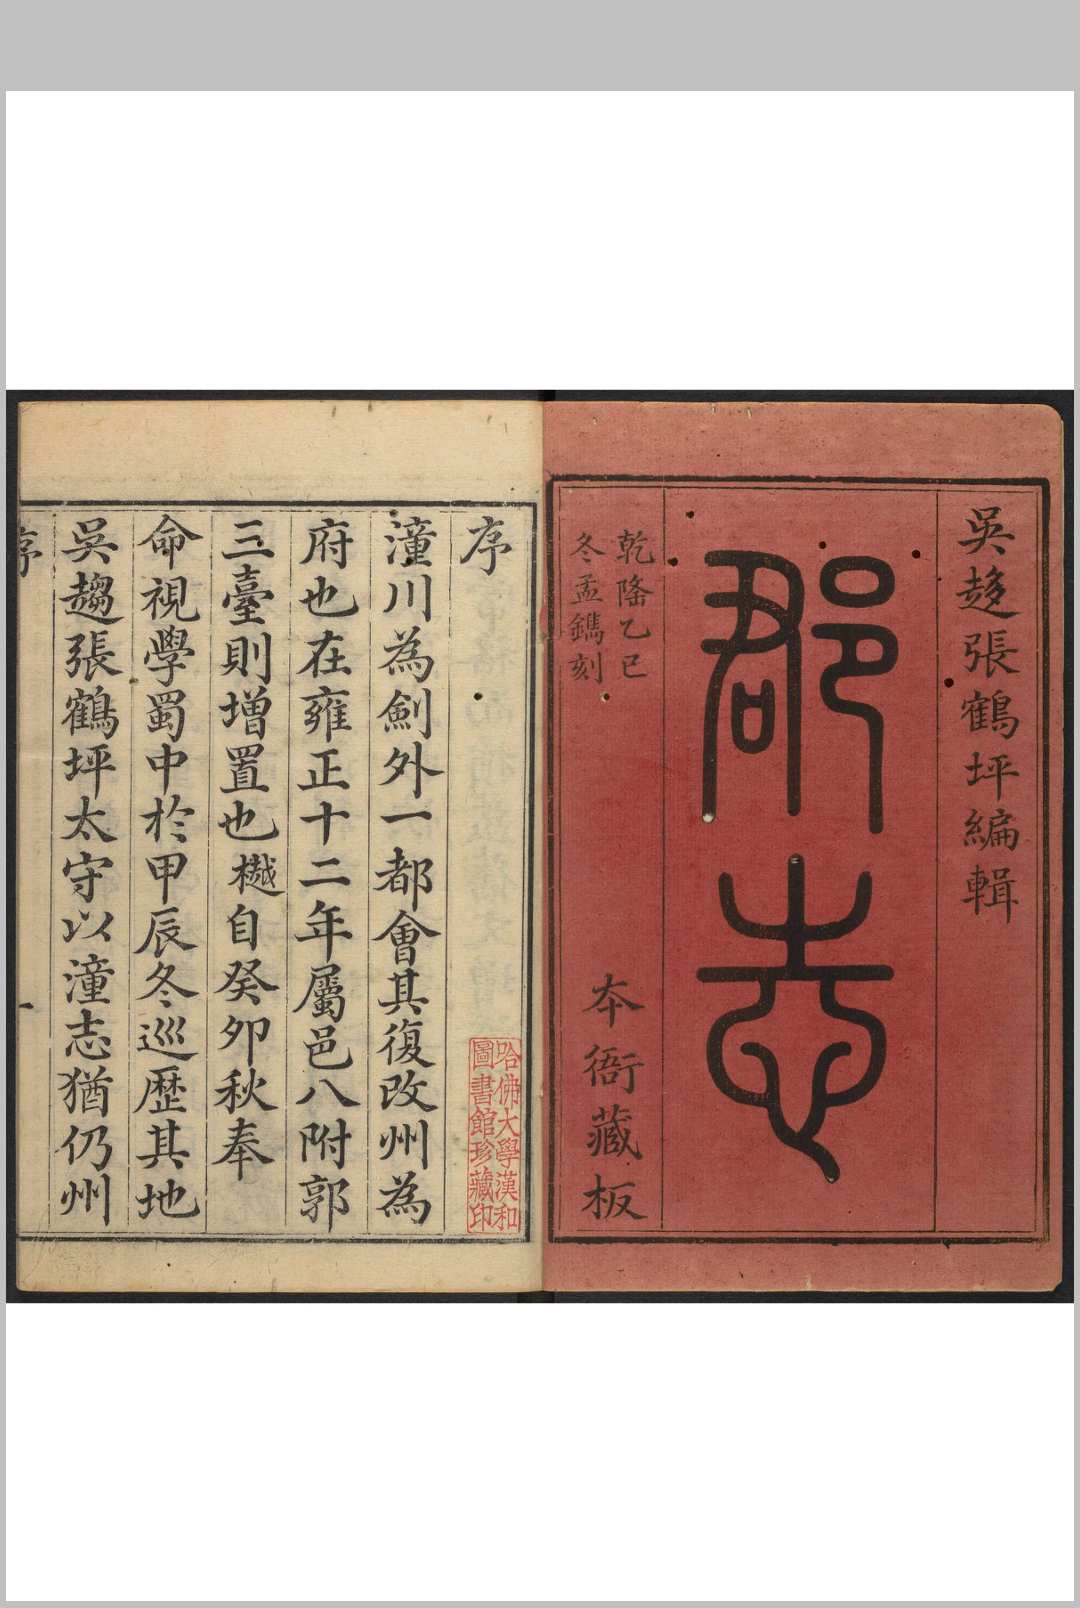 吳趍張鶴坪編輯
郡志
乾隆乙巳
冬孟鐫刻
本衙藏板
序
潼川為劍外一都會其復改州為
府也在雍正十二年屬邑八附郭
三臺則增置也樾自癸卯秋奉
命視學蜀中於甲辰冬巡歷其地
吳趨張鶴坪太守以潼志猶仍州
序
哈佛大學漢和
圖書館珍藏印